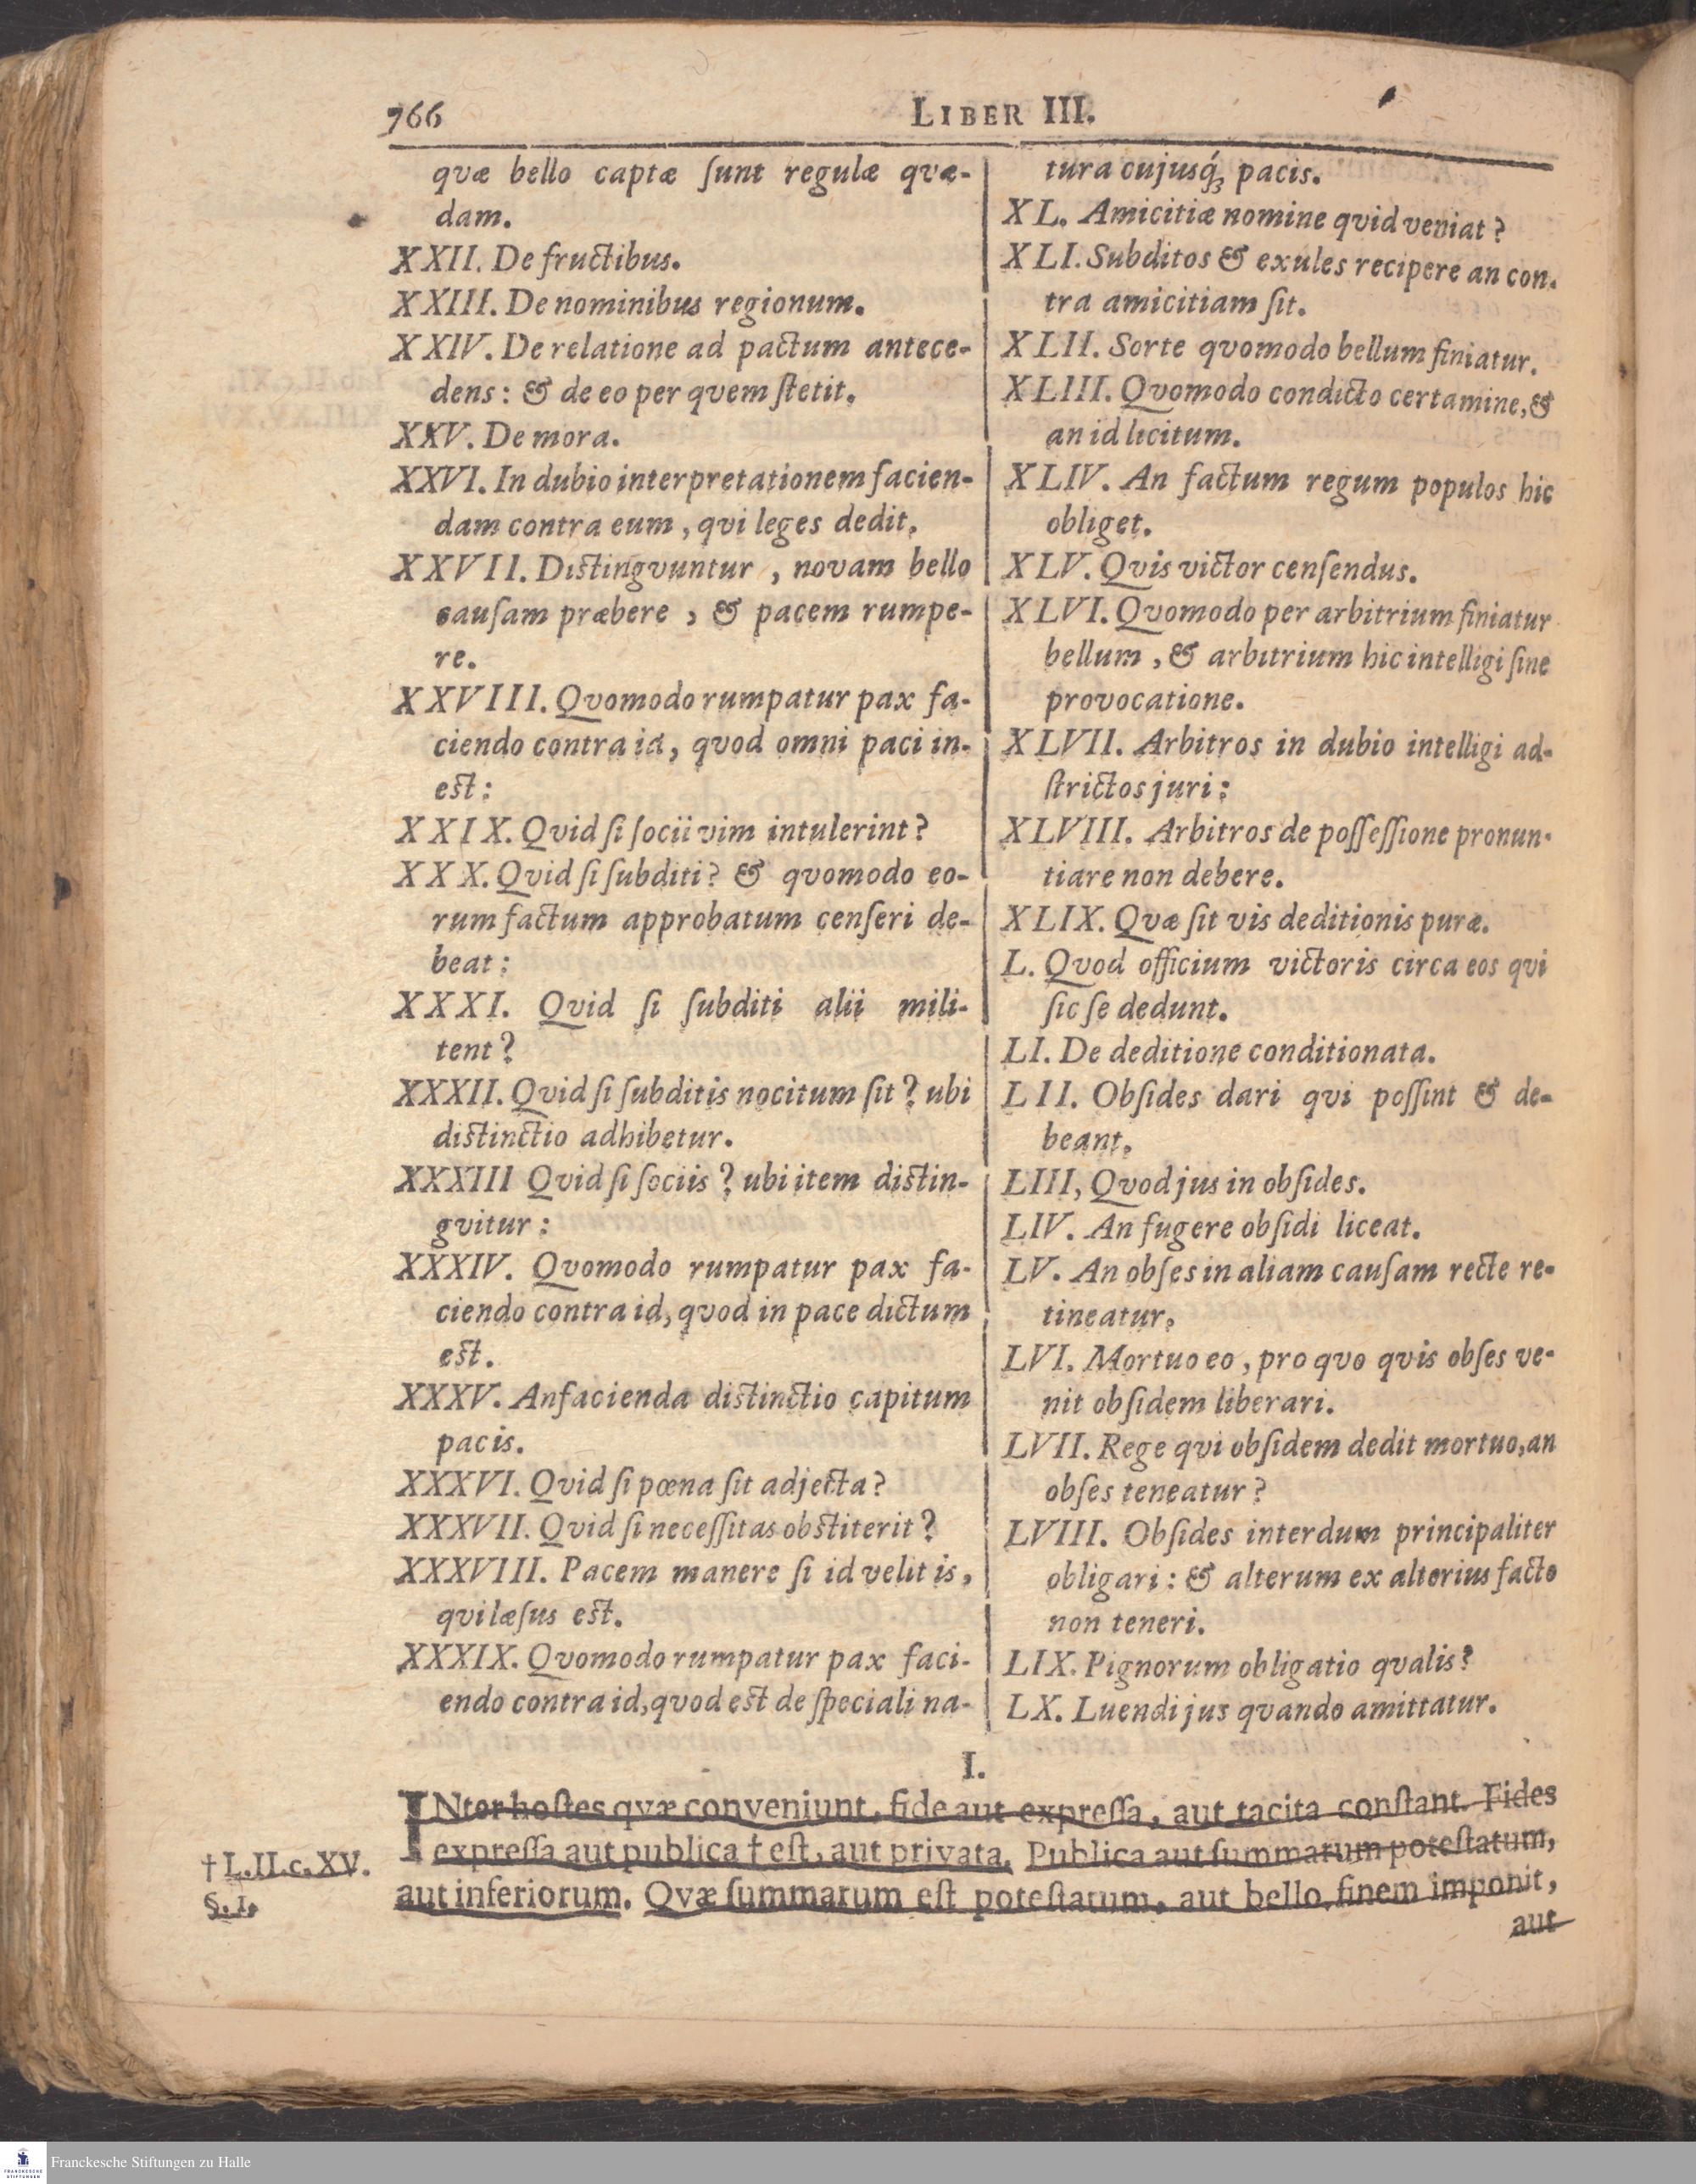 766
LIBER III.
qvæ bello captæ ſunt regulæ qvæ-
dam.
XXII. De fructibus.
XXIII. De nominibus regionum.
XXIV. De relatione ad pactum antece-
dens: & de eo per quem ſtetit.
XXV. De mora.
XXVI. In dubio interpretationem facien-
dam contra eum, qvi leges dedit.
XXVII. Distingvuntur, novam bello
cauſam præbere, & pacem rumpe-
re.
XXVIII. Qvomodo rumpatur pax fa-
ciendo contra id, quod omni paci in-
est:
XXIX. Qvid ſi ſocii vim intulerint?
XXX. Qvid ſi ſubditi? & qvomodo eo-
rum factum approbatum cenſeri de-
beat:
XXXI. Qvid ſi ſubditi alii mili-
tent?
XXXII. Qvid ſi ſubditis nocitum ſit? ubi
distinctio adhibetur.
XXXIII Qvid ſi ſociis? ubi item distin-
gvitur:
XXXIV. Qvomodo rumpatur pax fa-
ciendo contra id, qvod in pace dictum
est.
XXXV. An facienda distinctio capitum
pacis.
XXXVI. Qvid ſi pœna ſit adjecta?
XXXVII. Qvid ſi neceſſitas obstiterit?
XXXVIII. Pacem manere ſi id velit is,
qvi læſus est.
XXXIX. Qvomodo rumpatur pax faci-
endo contra id, qvod est de ſpeciali na-
tura cujusq́ꝫ pacis.
XL. Amicitiæ nomine qvid veniat?
XLI. Subditos & exules recipere an con-
tra amicitiam ſit.
XLII. Sorte qvomodo bellum finiatur.
XLIII. Qvomodo condicto certamine, &
an id licitum.
XLIV. An factum regum populos hic
obliget.
XLV. Qvis victor cenſendus.
XLVI. Qvomodo per arbitrium finiatur
bellum, & arbitrium hic intelligi ſine
provocatione.
XLVII. Arbitros in dubio intelligi ad-
ſtrictos juri:
XLVIII. Arbitros de poſſeſſione pronun-
tiare non debere.
XLIX. Qvæ ſit vis deditionis puræ.
L. Qvod officium victoris circa eos qvi
ſic ſe dedunt.
LI. De deditione conditionata.
LII. Obſides dari qvi poſſint & de-
beant.
LIII, Qvod jus in obſides.
LIV. An fugere obſidi liceat.
LV. An obſes in aliam cauſam recte re-
tineatur.
LVI. Mortuo eo, pro qvo qvis obſes ve-
nit obſidem liberari.
LVII. Rege qvi obſidem dedit mortuo, an
obſes teneatur?
LVIII. Obſides interdum principaliter
obligari: & alterum ex alterius facto
non teneri.
LIX. Pignorum obligatio qvalis?
LX. Luendi jus qvando amittatur.
I.
INter hoſtes qvæ conveniunt, fide aut expreſſa, aut tacita conſtant. Fides
expreſſa aut publica † eſt, aut privata. Publica aut ſummarum poteſtatum,
aut inferiorum. Qvæ ſummarum eſt poteſtatum, aut bello finem imponit,
aut
† L. II. c. XV.
§. 1.
Franckesche Stiftungen zu Halle
FRANCKESCHE
STIFTUNGEN